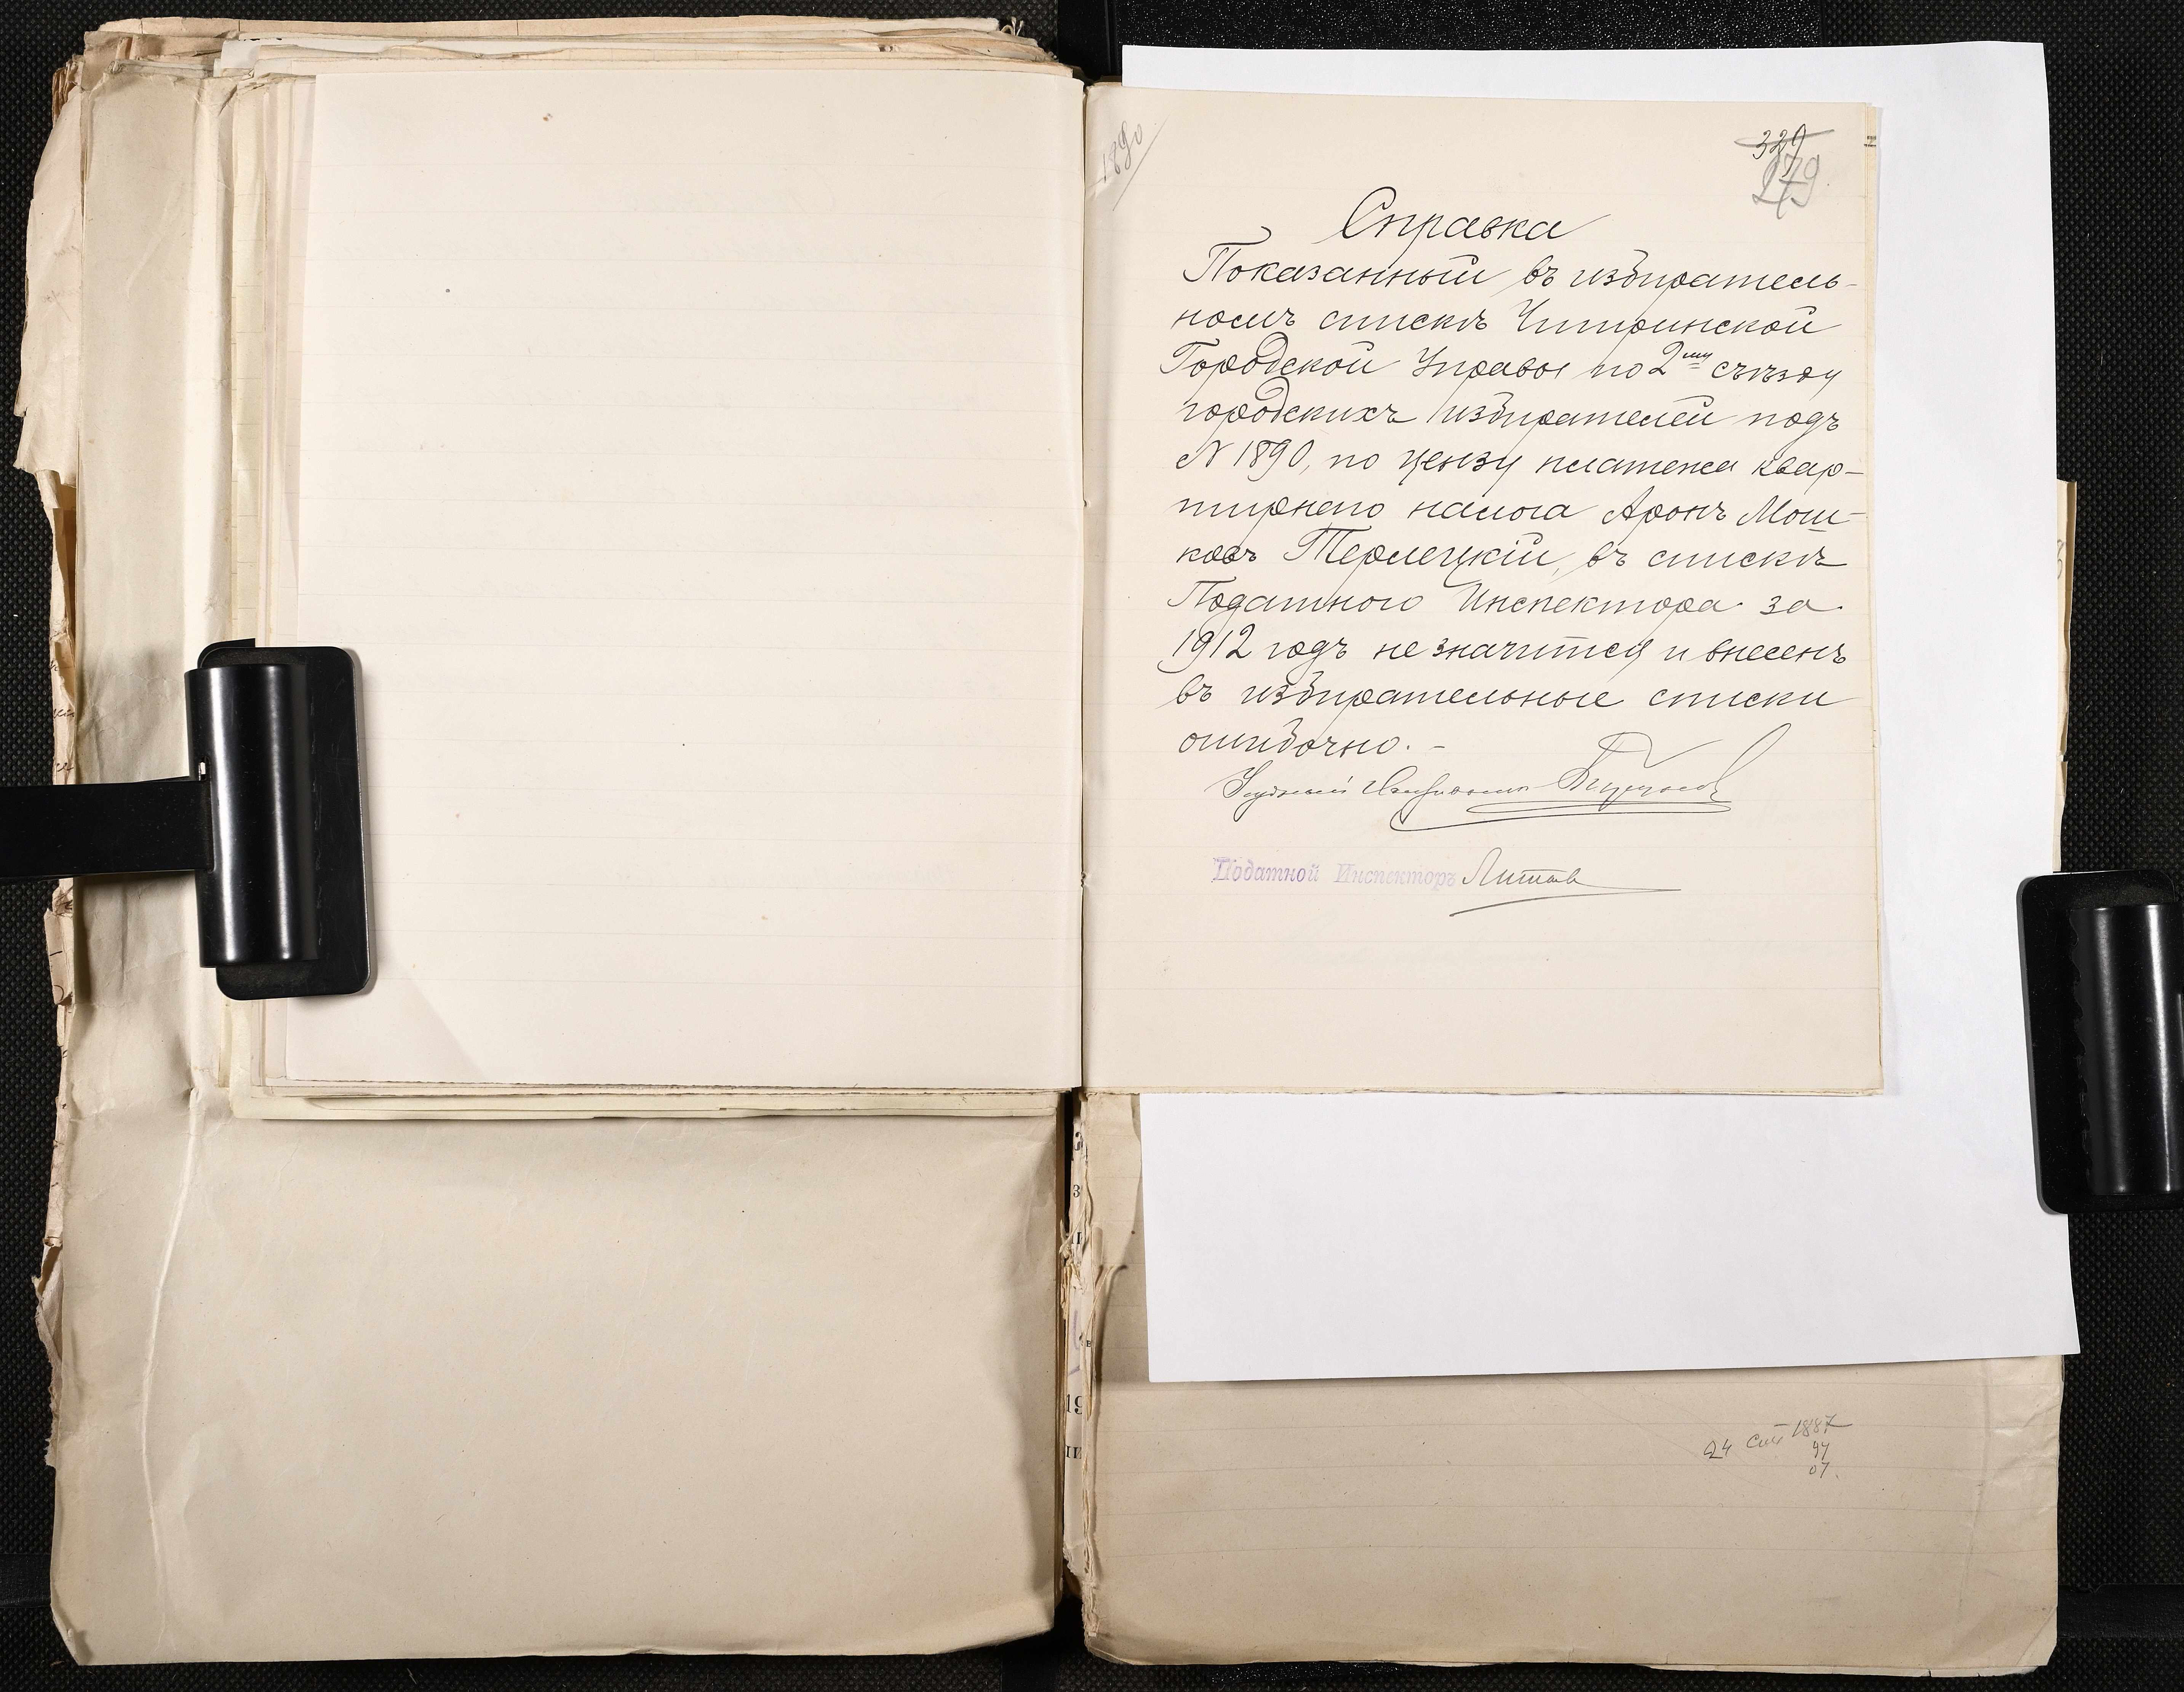 1890
329
279
Справка
Показанный въ избиратель-
номъ спискѣ Читинской
Городской Управы по 2му съѣзду
городскихъ избирателей подъ
N 1890, по цензу платежа квар-
тирнаго налога Аронъ Мош-
ковъ Терлецкій, въ спискѣ
Податного Инспектора за
1912 годъ не значится и внесенъ
въ избирательные списки
ошибочно. -
Податной Инспекторъ
24 1887
97
07.